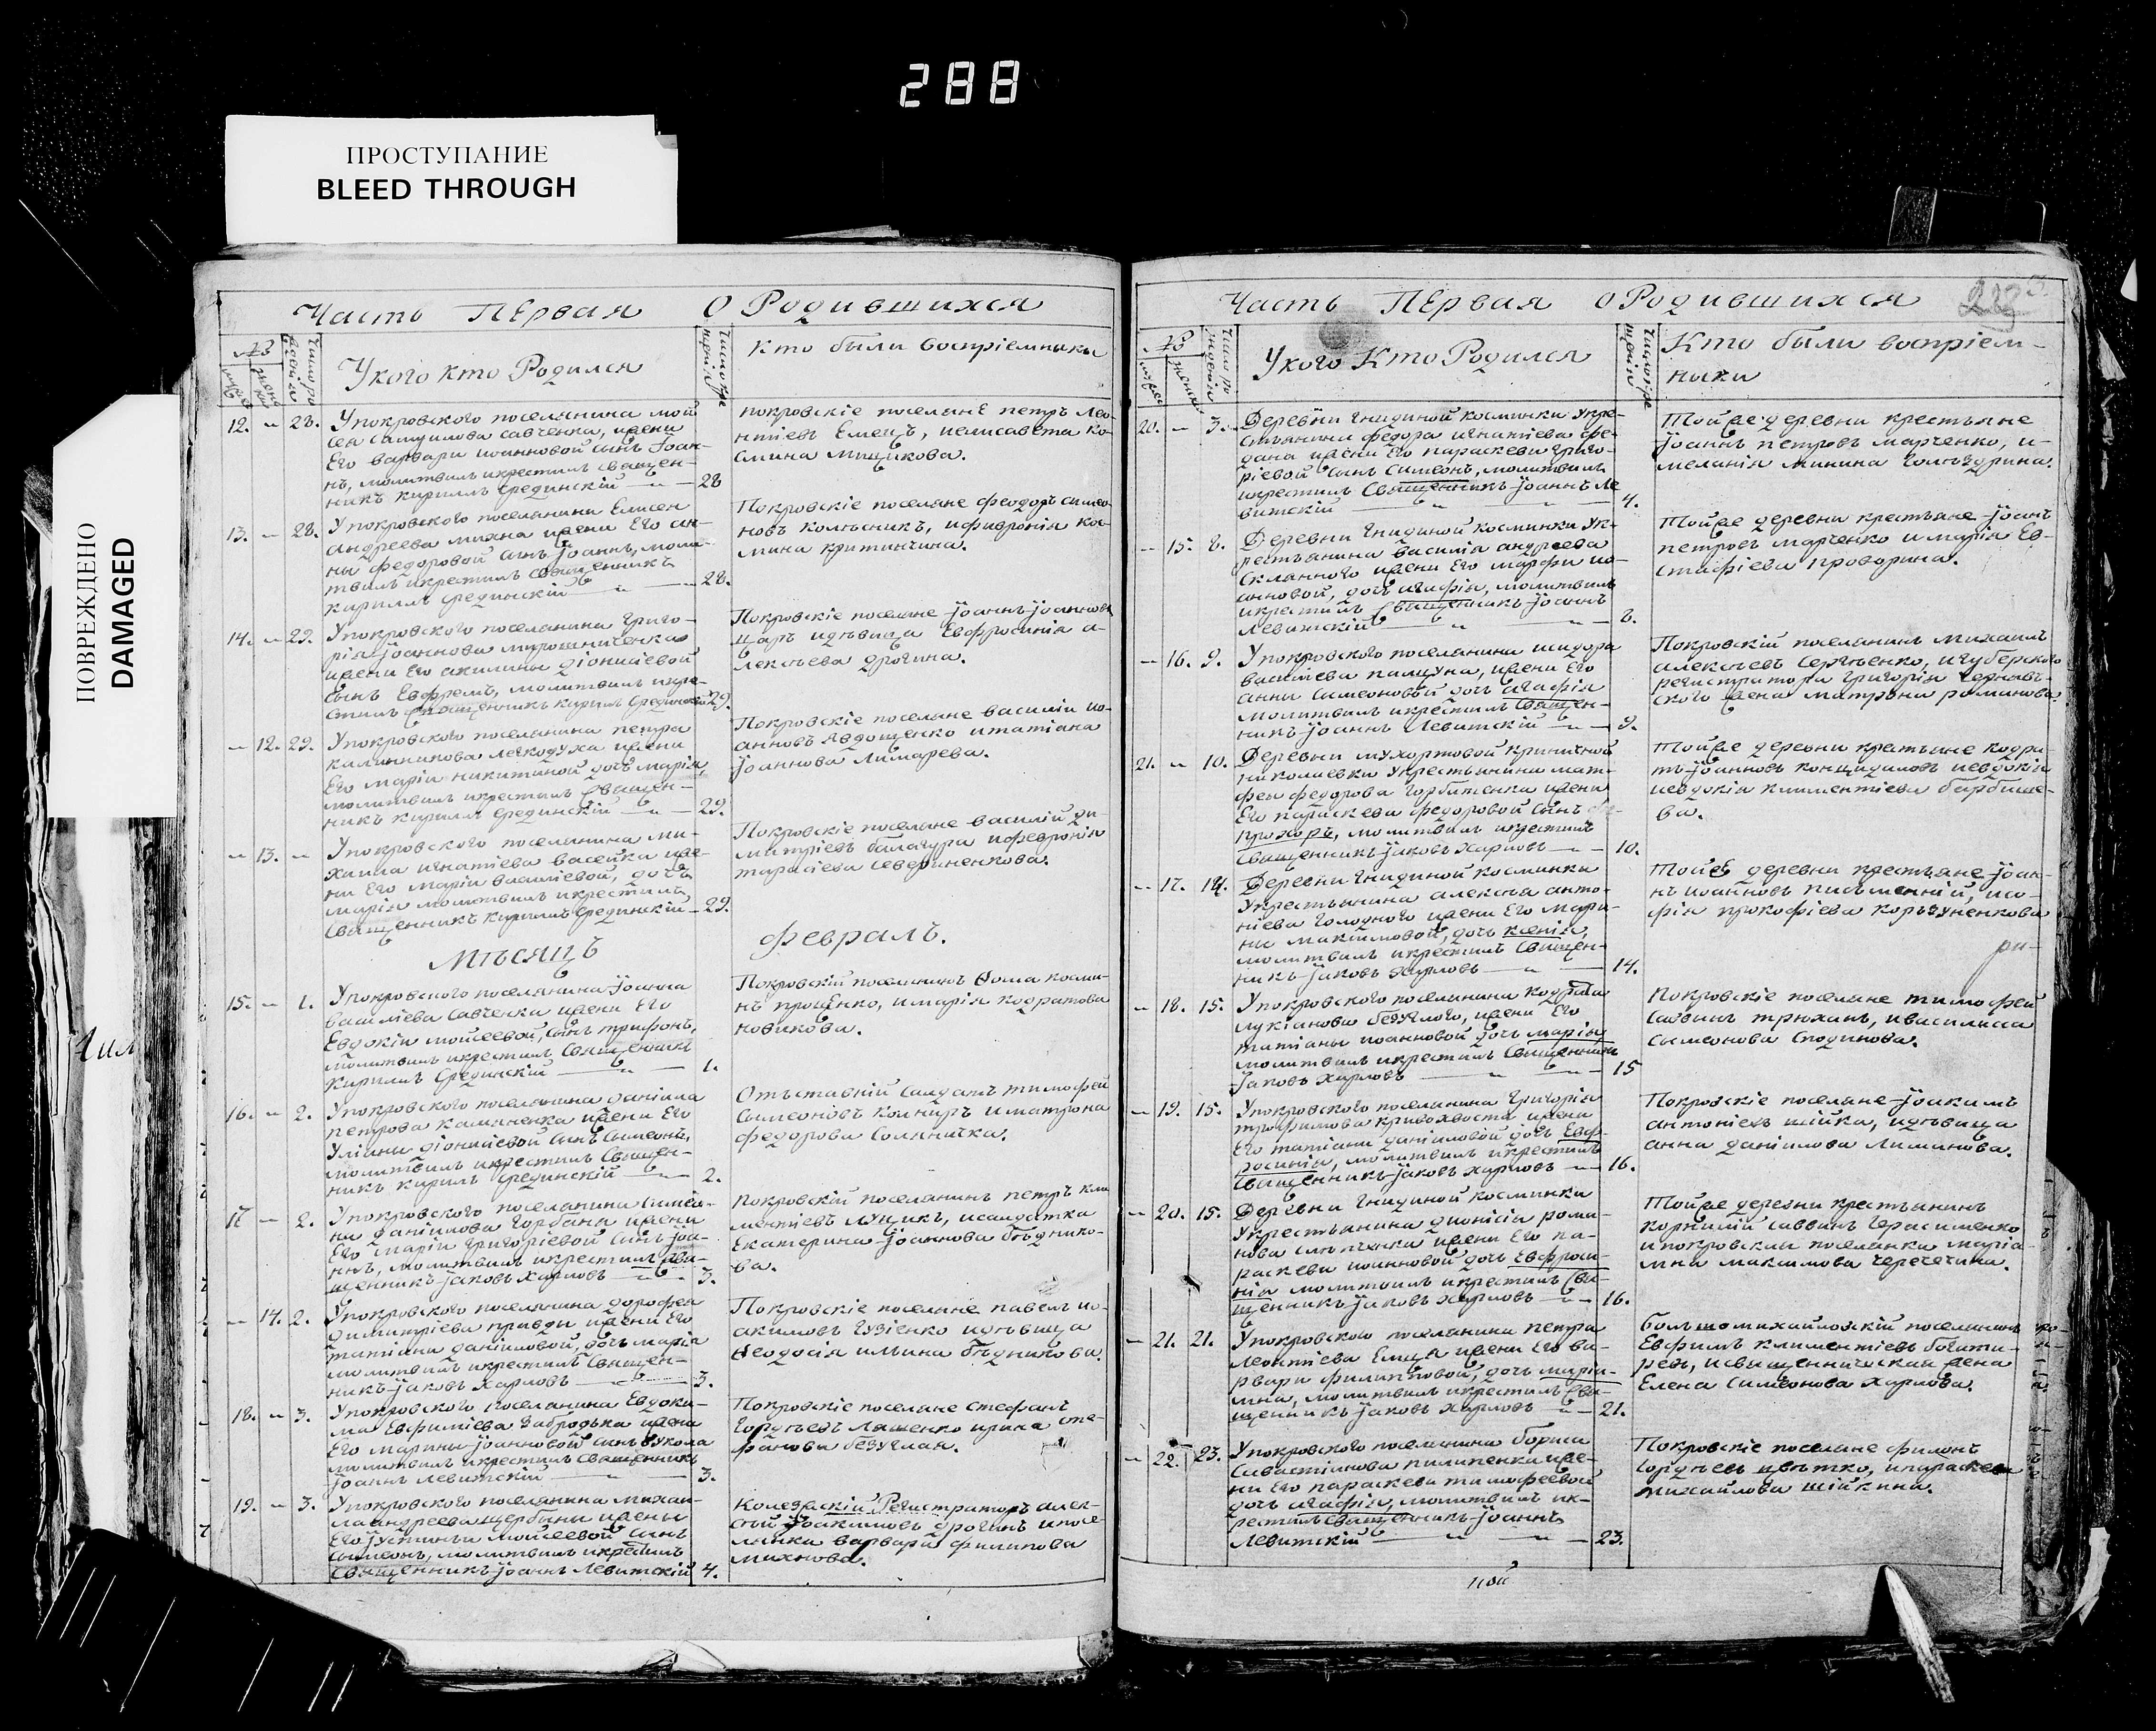 288
ПРОСТУПАНИЕ
BLEED THROUGH
ПОВРЕЖДЕНО
DAMAGED
Часть Первая О Родившихся
Укого кто Родился
Кто были воспріемники
12. 28. Упокровского поселянина мой
сея самуилова савченка, жени
Его варвари иоанновой сынъ Іоан-
нъ, молитвилъ икрестилъ священ-
никъ кирилъ Срединскій 28
покровскіе поселяне петръ лео-
нтіевъ Емецъ, иелисавета ко-
смина мищикова.
13. 28. Упокровского поселянина Елисея
андреева михна жени Его ан-
ны федоровой сынъ Іоаннъ, моли-
твилъ икрестилъ священникъ
кирилъ Срединскій 28.
Покровскіе поселяне феодоръ симео-
новъ колѣсникъ, ифивронія ко-
смина
14. 29. Упокровского поселянина Григо-
рія Іоаннова мирошниченка
жени Его акилины діонисіевой
сынъ Евфремъ, молитвилъ икре-
стилъ священникъ кирилъ Срединскій 29.
Покровскіе поселяне Іоаннъ Іоанновъ
царъ идѣвица Евфросинія а-
лексѣева дрогина.
12. 29. Упокровского поселянина петра
калинникова легкодуха жени
Его маріи никитиной дочь марія,
молитвилъ икрестилъ священ-
никъ кирилъ Срединскій 29.
Покровскіе поселяне василій ио-
анновъ Явдощенко итатіана
Іоаннова лимарева.
13. Упокровского поселянина ми-
хаила игнатіева васейка же-
ни Его маріи василіевой, дочь
марія молитвилъ икрестилъ
священникъ кирилъ Срединскій 29.
Покровскіе поселяне василій ди-
митріевъ балагура ифевронія
тарасіева севериненкова.
Мѣсяцъ февраль.
15. 1. Упокровского поселянина Іоанна
василіева савченка жени Его
Евдокіи мойсеевой, сынъ трифонъ,
молитвилъ икрестилъ священникъ
кирилъ Срединскій 1.
Покровскій поселянинъ Ѳома косми-
нъ проценко, имарія кодратова
новикова.
16. 2. Упокровского поселянина даніила
петрова калиненка жени Его
Уліяни діонисіевой сынъ Сымеонъ,
молитвилъ икрестилъ священ-
никъ кирилъ Срединскій 2.
Отъставній салдатъ тимофей
Сымеоновъ иматрона
федорова Соляничка.
17 2. Упокровского поселянина Симео-
на даніилова Горбаня жени
Его маріи Григоріевой сынъ Іоа-
ннъ, молитвилъ икрестилъ свя-
щенникъ Іаковъ Харловъ 3.
покровскій поселянинъ петръ кли
ментіевъ луцикъ, исалдатка
Екатерина Іоаннова бѣднико-
ва.
14. 2. Упокровского поселянина дорофея
димитріева правди жени Его
татіани даніиловой, дочь марія
молитвилъ икрестилъ священ-
никъ Іаковъ Харловъ 3.
Покровскіе поселяне павелъ ио-
акимовъ Гузіенко идѣвица
Ѳеодосія ильина бѣдникова.
18. 3. Упокровского поселянина Евдоки-
ма Евфиміева Забродька жена
Его марины Іоанновой сынъ вукола
молитвилъ икрестилъ священникъ
Іоаннъ левитскій 3.
Покровскіе поселяне стефанъ
Гордѣевъ ляшенко ирина сте-
фанова безуглая.
19. 3. Упокровского поселянина михаи-
ла андреева щербини жены
Его Іустиньи мойсеевой сынъ
сымеонъ, молитвилъ икрестилъ
священникъ Іоаннъ левитскій 4.
Колезскій Регистраторъ алек-
сѣй Іоакимовъ дрогинъ ипосе-
лянка варвара филипова
михнова.
Часть Первая О Родившихся
Укого Кто Родился
Кто были воспріем-
ники
20. 3. Деревни Гнидиной косминки Укре-
стьянина федора игнатіева фе-
дана жени Его параскеви Григо-
ріевой сынъ Симеонъ, молитвилъ
икрестилъ священникъ Іоаннъ ле
витскій 4.
Тойже деревни крестьяне
Іоаннъ петровъ марченко, и-
меланія минина
15. 8. Деревни Гнидиной косминки Ук-
рестьянина василія андреева
жени Его марфи ио-
анновой, дочь агафія, молитвилъ
икрестилъ священникъ Іоаннъ
Левитскій 8.
Тойже деревни крестьяне Іоанъ
петровъ марченко имарія Ев-
стафіева проворина.
16. 9. Упокровского поселянина исидора
василіева пащуна, жени Его
анни Симеоновой дочь агафія
молитвилъ икрестилъ священ-
никъ Іоаннъ Левитскій 9.
Покровскій поселянинъ михаилъ
алексѣевъ Сергѣенко, игуберского
регистратора Григорія Чернавъ-
ского жена матрона романова
21. 10. Деревни мухортовой криничной
николаевки Укрестьянина мат-
фея федорова Горбатенка жени
Его параскева федоровой сынъ
прохоръ, молитвилъ икрестилъ
священникъ Іаковъ Харловъ 10.
Тойже деревни крестьяне кодра-
тъ Іоанновъ иевдокія
иевдокія климентіева
ва.
17. 14. Деревни Гнидиной косминки
Укрестьянина алексѣя анто-
ніева Голодного жени Его мари-
ны максимовой, дочь ксенія,
молитвилъ икрестилъ священ-
никъ Іаковъ Харловъ 14.
Тойже деревни крестьяне Іоан-
нъ иоанновъ писъменній, исо-
фія прокофіева
18. 15. Упокровского поселянина кодрата
лукіанова безуглого, жени Его
татіаны иоанновой дочь марія
молитвилъ икрестилъ священникъ
Іаковъ Харловъ 15
Покровскіе поселяне тимофей
саввинъ трюханъ, ивасилисса
Симеонова Сподинова.
19. 15. Упокровского поселянина Григорія
трофимова кривохвоста жени
Его татіани даніиловой дочь Евф-
росинія, молитвилъ икрестилъ
священникъ Іаковъ Харловъ 16.
Покровскіе поселяне Іоакимъ
антоніевъ шійка, идѣвица
анна даніилова Лиманова.
20. 15. Деревни Гнидиной косминки
Укрестьянина дионісія рома-
нова слѣпченка жени Его па-
раскеви иоанновой дочь Евфроси-
нія молитвилъ икрестилъ свя-
щенникъ Іаковъ Харловъ 16.
Тойже деревни крестьянинъ
корнилій саввинъ Герасименко
ипокровская поселянка маріа-
мна максимова Черечечина.
21. 21. Упокровского поселянина петра
Леонтіева Емца жени Его ва-
рвари филипповой, дочь маріа-
мна, молитвилъ икрестилъ свя-
щенникъ Іаковъ Харловъ 21.
Большомихайловскій поселянинъ
Евфимъ климентіевъ богати-
ревъ, исвященническая жена
Елена Симеонова Харлова.
22. 23. Упокровского поселянина бориса
Савастіянова пилипенка же-
ни Его параскеви тимофеевой
дочь агафія, молитвилъ ик-
рестилъ священникъ Іоаннъ
Левитскій 23.
Покровскіе поселяне филонъ
Гордѣевъ цвѣтко, ипараскева
михайлова шійкина.